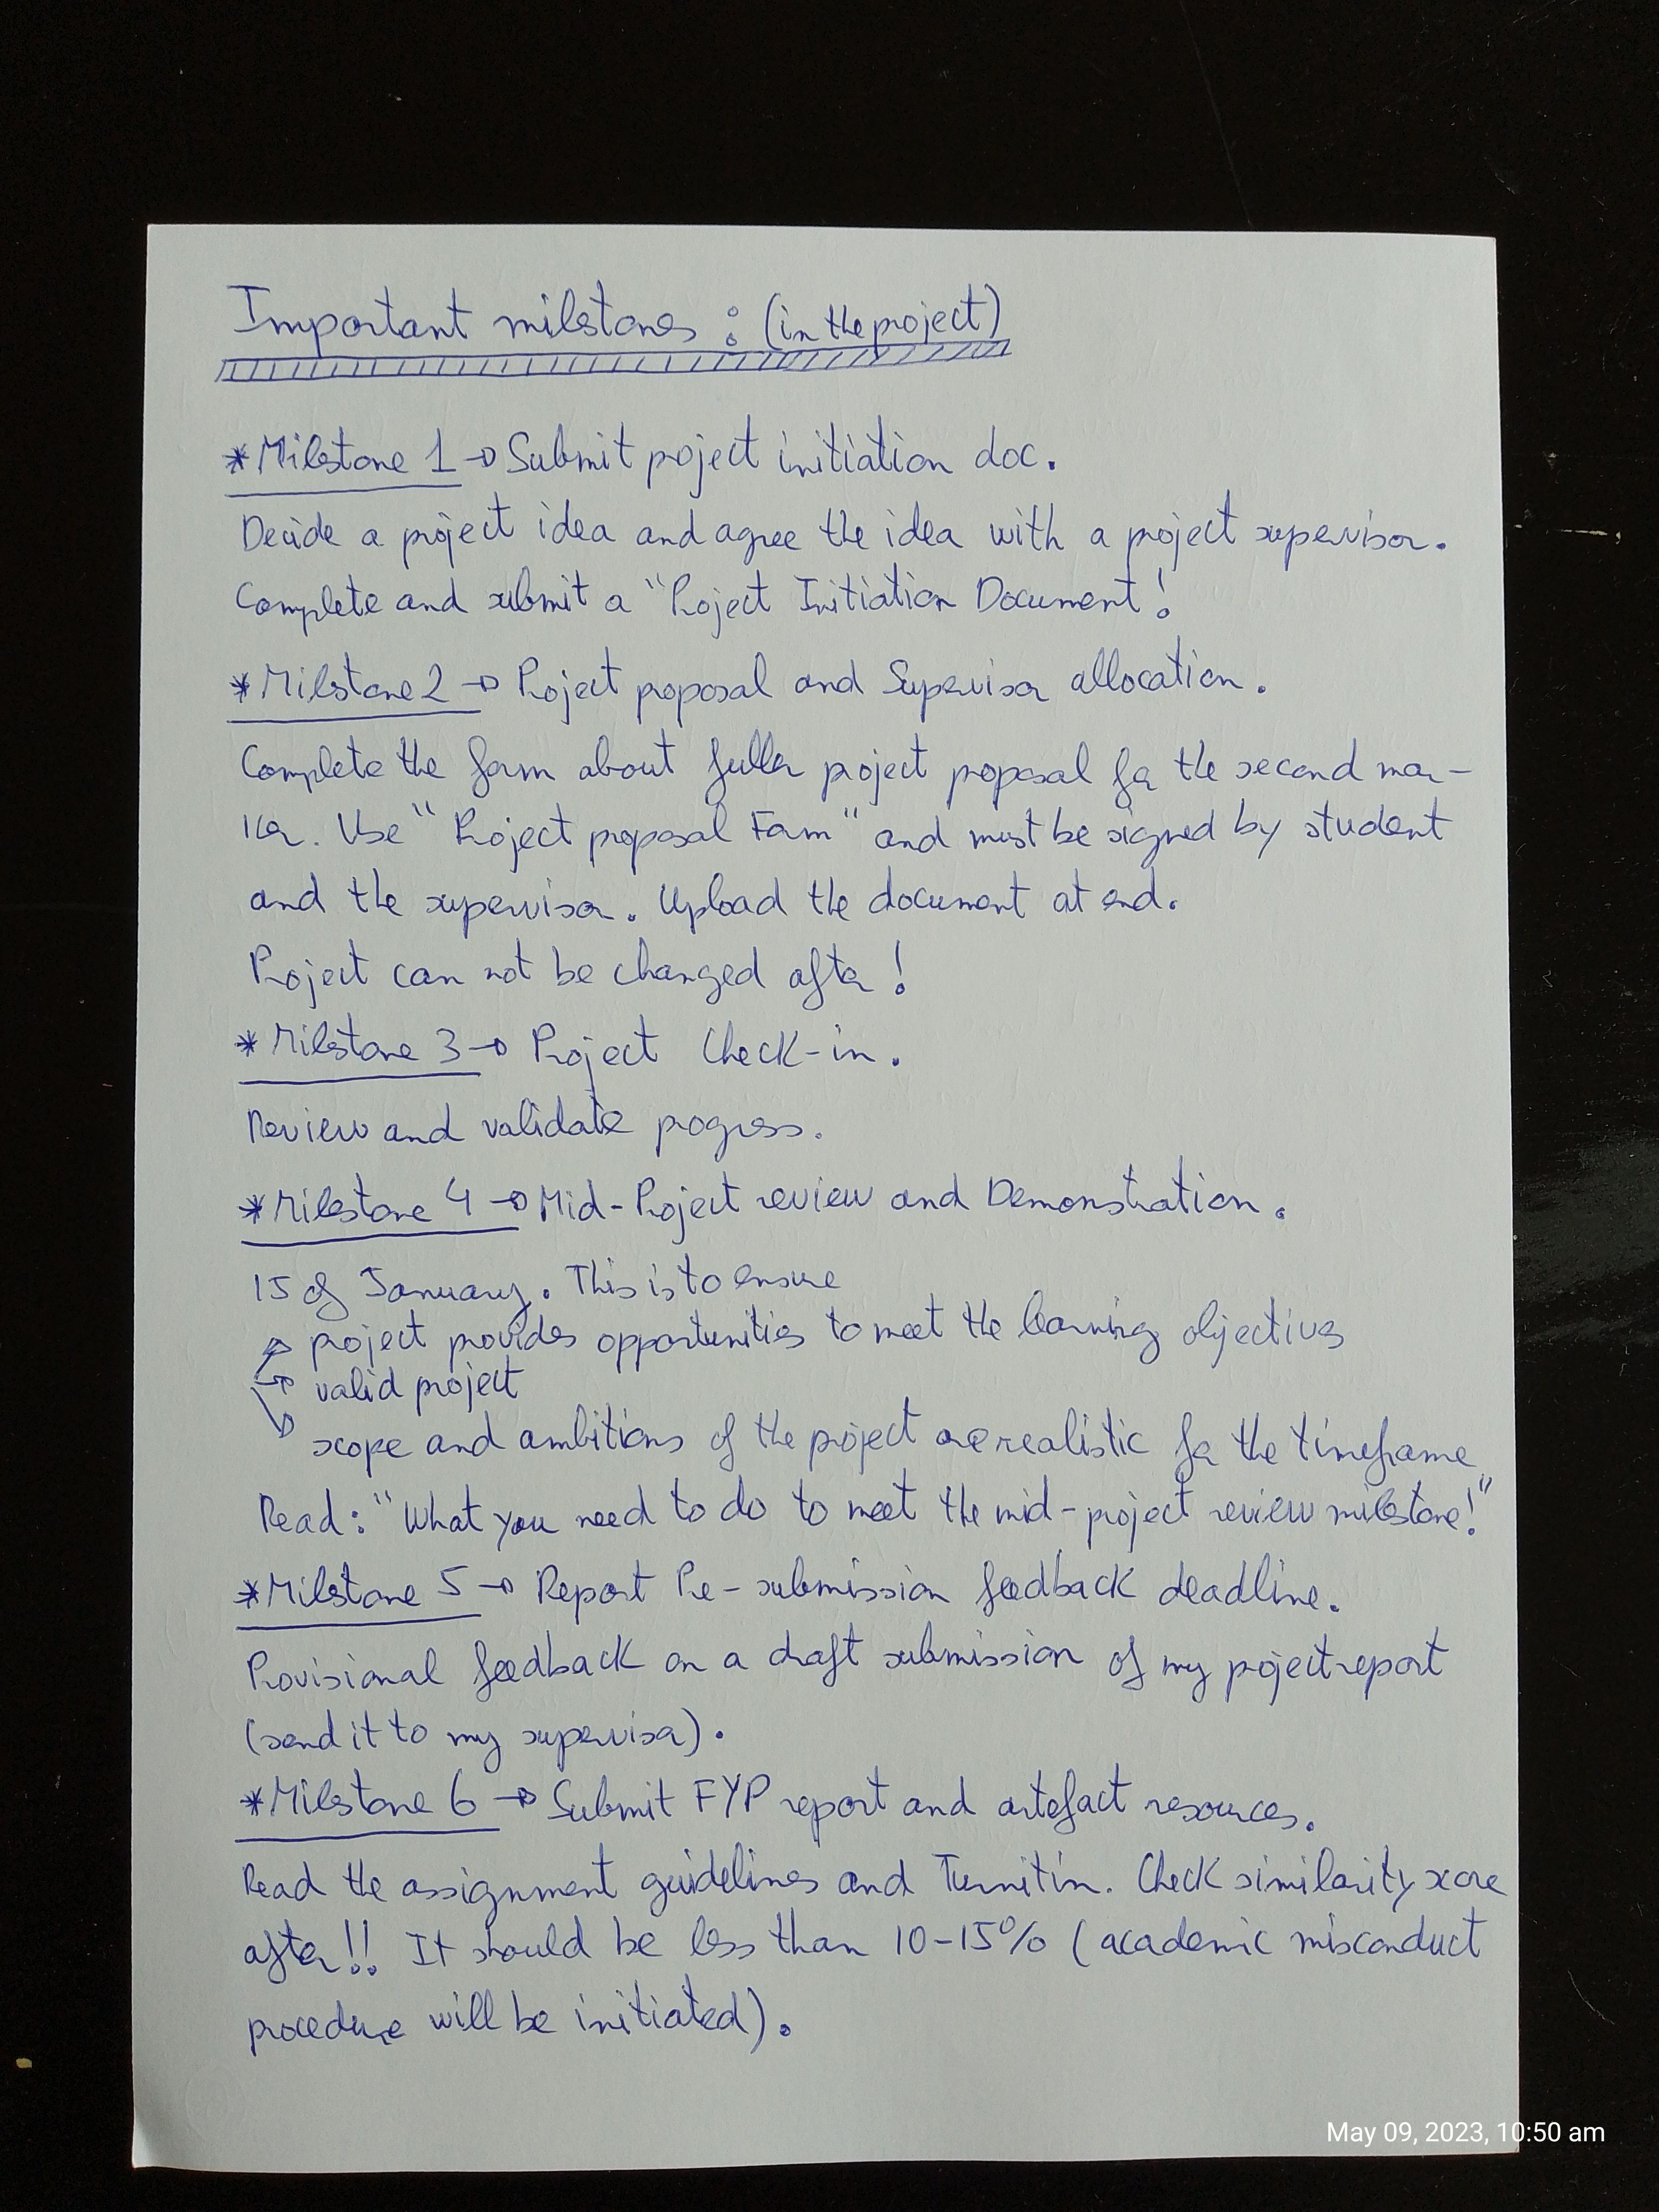 Important milstones : (in the project)
*Milstone 1 → Submit project initiation doc.
Decide a project idea and agree the idea with a project supervisor.
Complete and submit a "Project Initiation Document!
*Milstone 2 → Project proposal and Supervisor allocation.
Complete the form about fuller project proposal for the second mar-
ker. Use "Project proposal Form" and must be signed by student
and the supervisor. Upload the document at end.
Project can not be changed after!
*Milstone 3 → Project Check-in.
Review and validate progress.
*Milestone 4 → Mid-Project review and Demonstration.
15 of January. This is to ensure
→ project provides opportunities to meet the learning objectives
→ valid project
→ scope and ambitions of the project are realistic for the timeframe
Read: "What you need to do to meet the mid-project review milestone!"
*Milstone 5 → Report Pre-submission feedback deadline.
Provisional feedback on a draft submission of my project report
(send it to my supervisor).
*Milstone 6 → Submit FYP report and artefact resources.
Read the assignment guidelines and Turnitin. Check similarity score
after!! It should be less than 10-15% (academic misconduct
procedure will be initiated).
May 09, 2023, 10:50 am